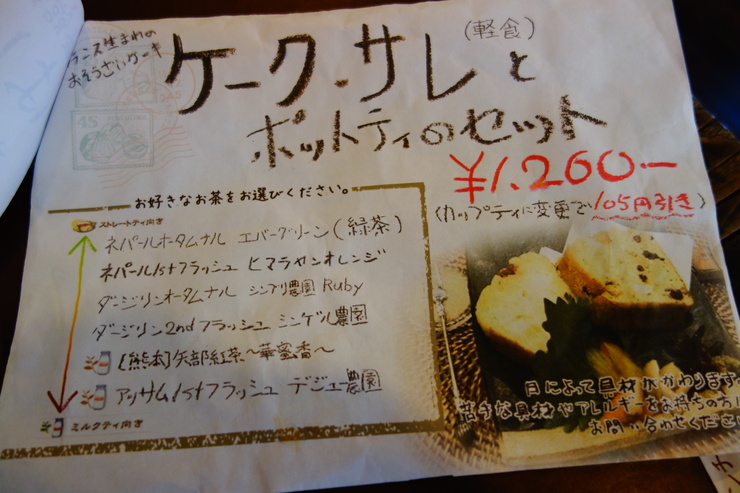 ランス生まれの
おそうざいケーキ
(軽食)
ケーク・サレと
ポットティのセット
¥1,260-
(カップティに変更で105円引き)
お好きなお茶をお選びください。
ストレートティ向き
ネパールオータムナル エバーグリーン(緑茶)
ネパール1stフラッシュ ヒマラヤンオレンジ
ダージリンオータムナル シンブリ農園 Ruby
ダージリン2ndフラッシュ シンゲル農園
[熊本]矢部紅茶〜華蜜香〜
アッサム1stフラッシュ デジュー農園
ミルクティ向き
日によって具材がかわります。
苦手な具材やアレルギーをお持ちの方は
お問い合わせください
45